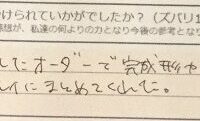 けられていかがでしたか？（ズバリ1
想が、私達の何よりの力となり今後の参考となり
したオーダーで完成形や
イにまとめてくれた。